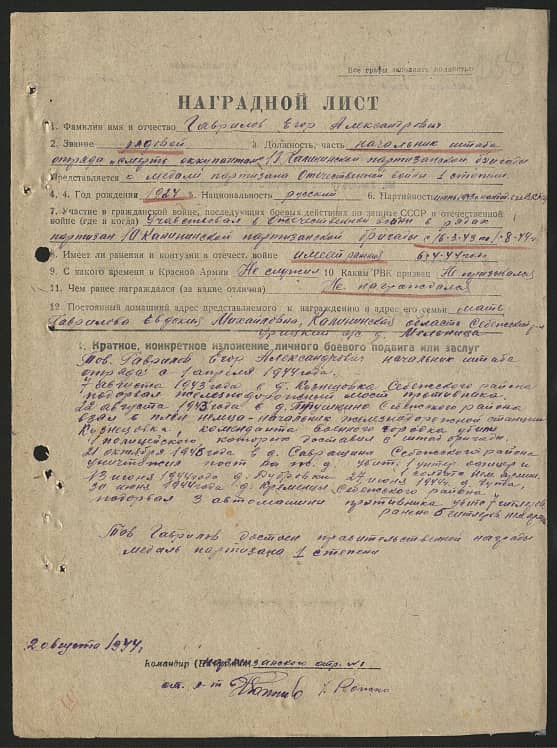 Все графы заполнять полностью
НАГРАДНОЙ ЛИСТ
1. Фамилия имя и отчество Гаврилов Егор Александрович
2. Звание рядовой 3. Должность, часть начальник штаба
отряда "Смерть оккупантам" 10 Калининской партизанской бригады
Представляется к медали партизана Отечественной войны 1 степени
4. 4. Год рождения 1924 5. Национальность русский 6. Партийность
7. Участие в гражданской войне, последующих боевых действиях по защите СССР и отечественной
войне (где и когда) Участвовал в Отечественной войне в рядах
партизан 10 Калининской партизанской бригады с 16-3-43 по 1-8-44 г.
8. Имеет ли ранения и контузии в отечест. войне имеет ранения
9. С какого времени в Красной Армии Не служил 10 Каким РВК призван Не призывался
11. Чем ранее награждался (за какие отличия) Не награждался
12. Постоянный домашний адрес представляемого к награждению и адрес его семьи мать
Гаврилова Евдокия Михайловна, Калининская область Себежский р-н
I. Краткое, конкретное изложение личного боевого подвига или заслуг
Тов. Гаврилов Егор Александрович начальник штаба
отряда с 1 апреля 1944 года.
7 августа 1943 года в д. Кузнецовка Себежского района
подорвал железнодорожный мост противника.
22 августа 1943 года в д. Себежского района
взял в плен немца-начальника железнодорожной станции
Кузнецовка, коменданта военного городка, убит
1 полицейского, которых доставил в штаб бригады.
21 октября 1943 года в д. Себежского района
уничтожил пост на ж.д. убит 1 унтер офицер и
13 июня 1944 года д. Дубровки 27 июня 1944 г. д.
30 июня 1944 года д. Себежского района
подорвал 3 автомашины противника
ранено 5
Тов Гаврилов достоин правительственной награды
медаль партизана 1 степени
2 августа 1944 г.
Командир партизанского отр. №1
ст. л-т